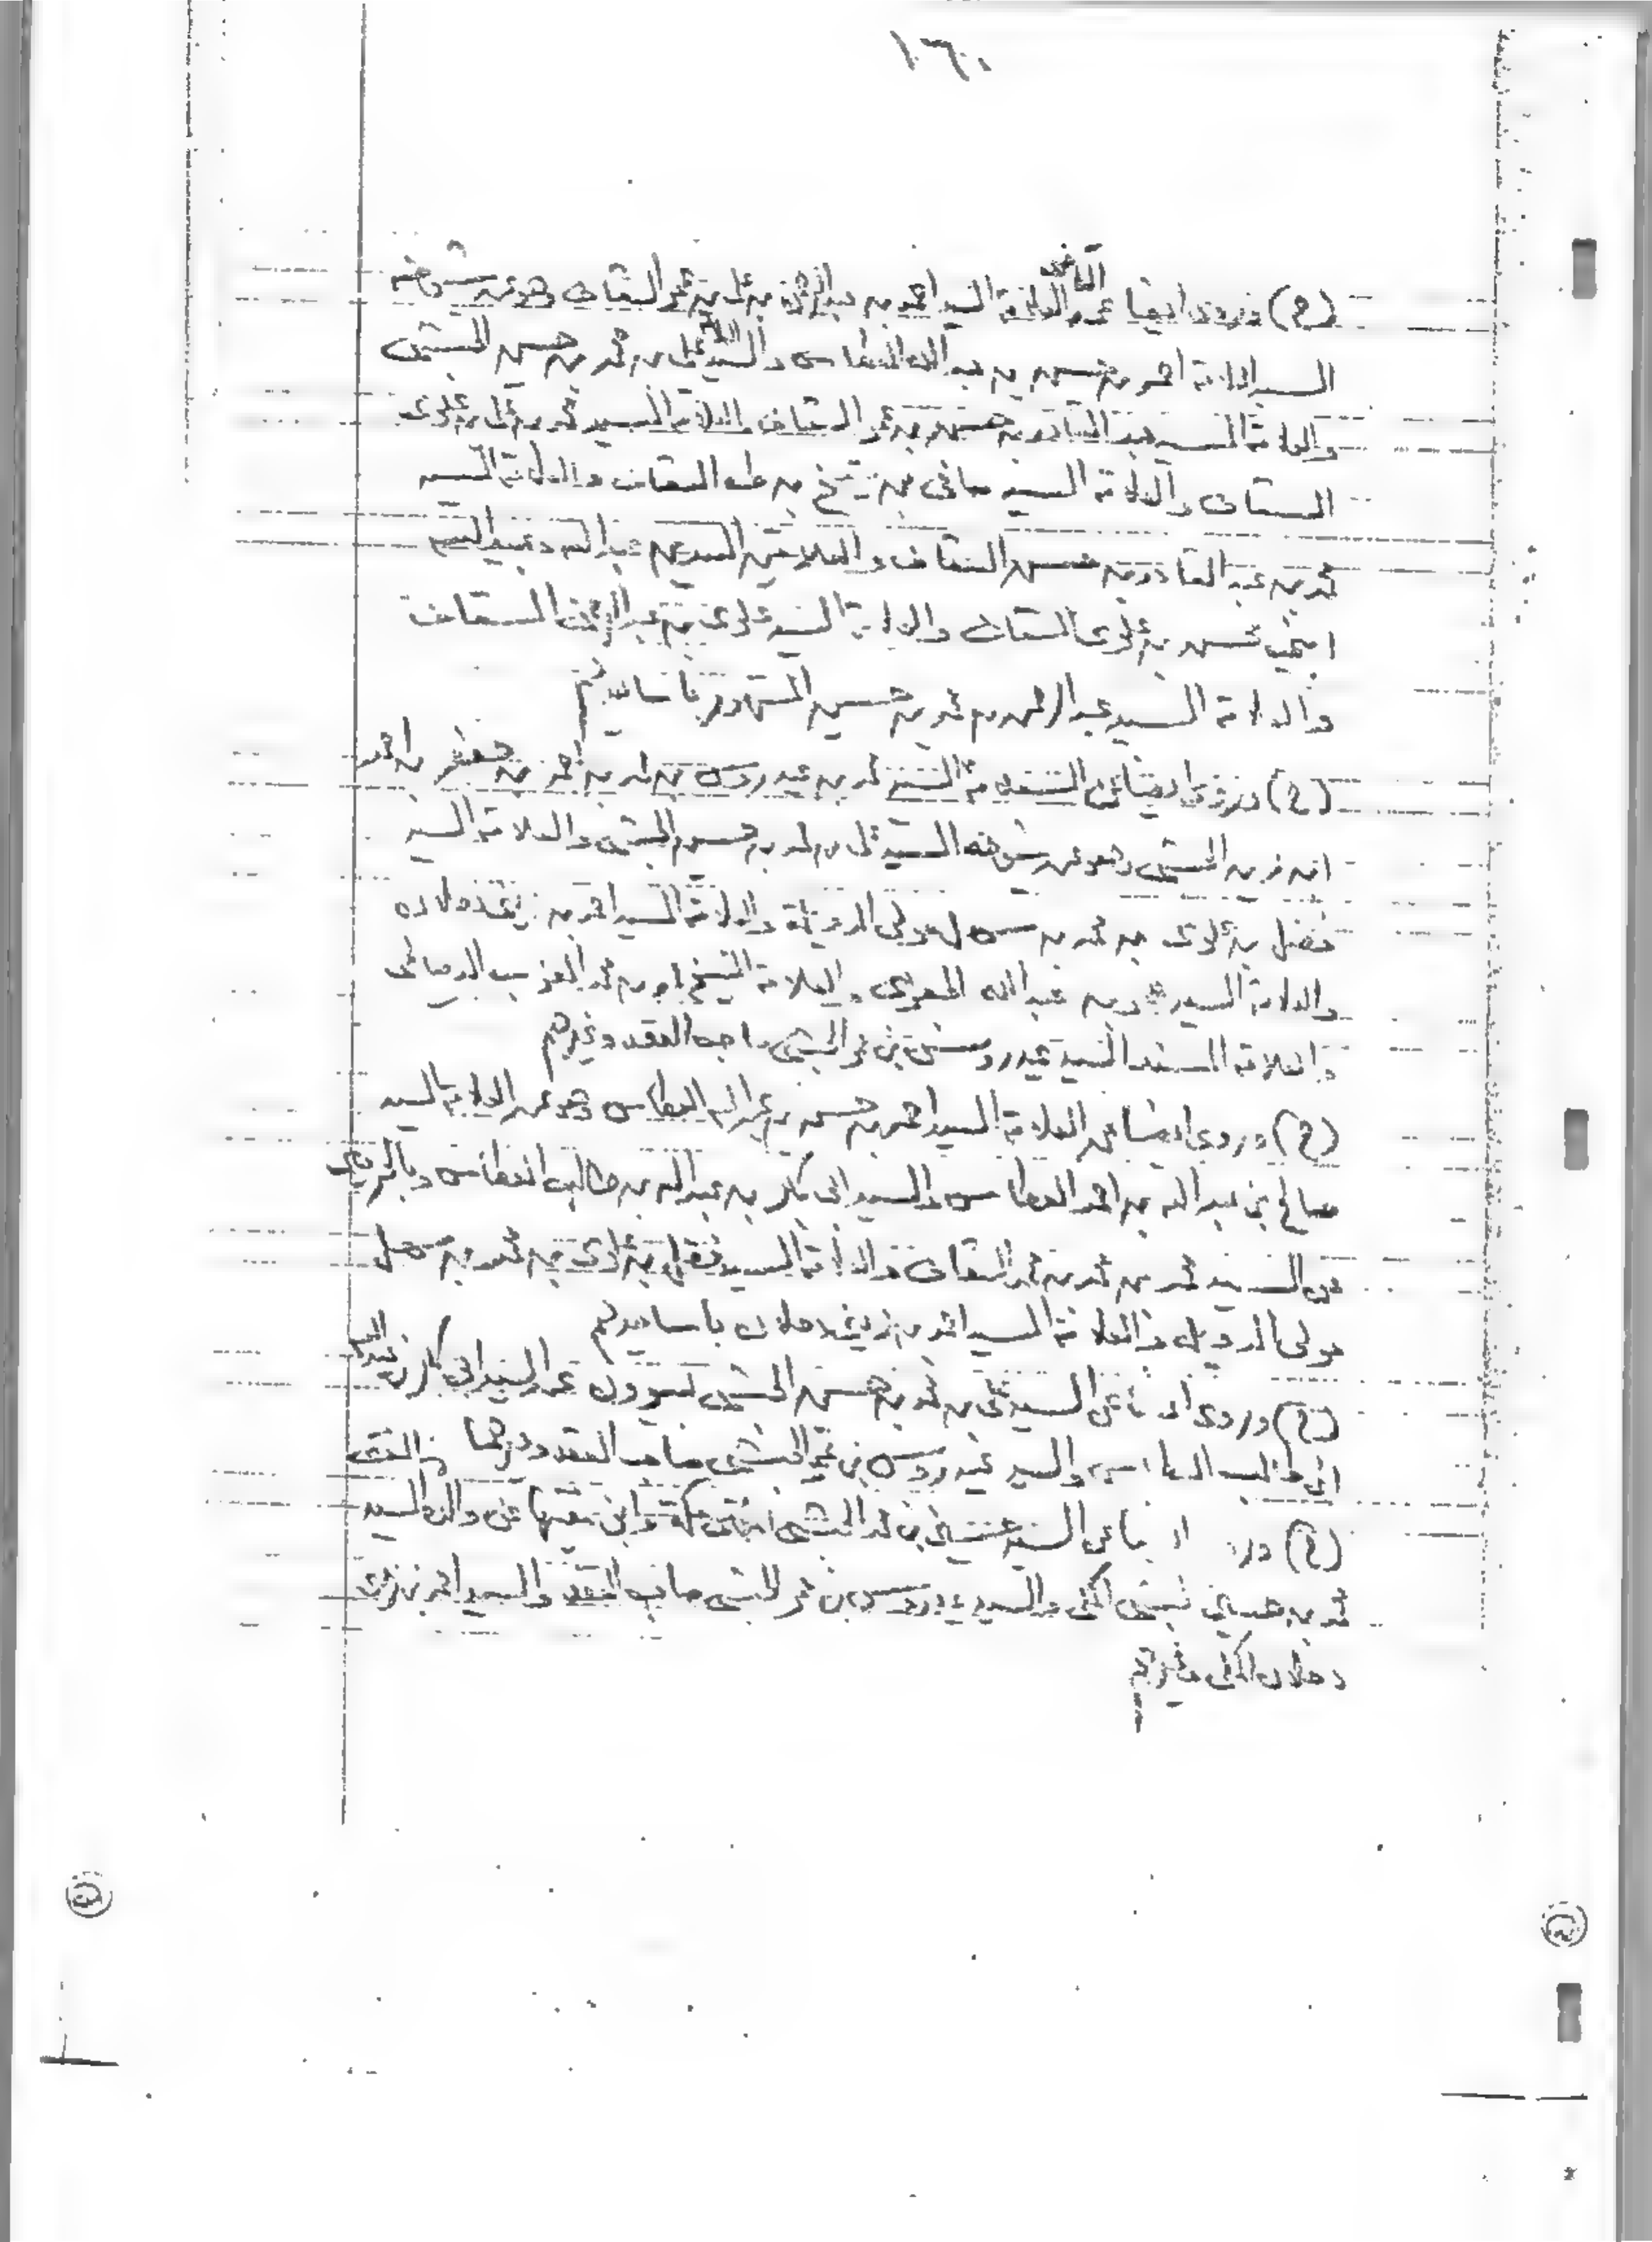 ١٦٠
(ح) وروى ايضا عن العلامة القاضى السيد احمد بن عبدالرحمن بن على بن عمر السقاف وهو عن شيوخه
السيد العلامة احمد بن حسن بن عبدالله العطاس والسيد على بن محمد بن حسين الحبشى
والعلامة السيد عبدالقادر بن حسن بن عمر السقاف والعلامة السيد محمد بن على بن علوى
السقاف والعلامة السيد صافى بن شيخ بن طه السقاف والعلامة السيد
محمد بن عبدالقادر بن حسن السقاف والعلامتين السيدين عبدالله وعبيدالله
ابنى محسن بن علوى السقاف والعلامة السيد علوى بن عبدالرحمن السقاف
والعلامة السيد عبدالرحمن بن محمد بن حسين المشهور باسانيدهم
(ح) وروى ايضا عن السيد محمد بن عيدروس بن محمد بن احمد بن جعفر بن احمد
ابن زين الحبشى وهو عن شيوخه السيد على بن محمد بن حسين الحبشى والعلامة السيد
فضل بن علوى بن محمد بن سهل مولى الدويلة والعلامة السيد احمد بن زينى دحلان
والعلامة السيد عمر بن عبدالله الجفرى والعلامة الشيخ محمد بن محمد العزب الدمياطى
والعلامة المسند السيد عيدروس بن عمر الحبشى صاحب العقد وغيرهم
(ح) وروى ايضا عن العلامة السيد احمد بن حسن بن عبدالله العطاس وهو عن العلامة السيد
صالح بن عبدالله بن احمد العطاس والسيد ابى بكر بن عبدالله بن طالب العطاس
عن السيد محمد بن محمد بن محمد السقاف والعلامة السيد فضل بن علوى بن محمد بن سهل
مولى الدويلة والعلامة السيد احمد بن زينى دحلان باسانيدهم
(ح) وروى ايضا عن السيد على بن محمد بن حسين الحبشى عن السيد ابى بكر بن عبدالله
ابن طالب العطاس والسيد عيدروس بن عمر الحبشى صاحب العقد وغيرهما
(ح) ايضا عن السيد حسين بن محمد الحبشى مفتى مكة وابن مفتيها عن والده السيد
محمد بن حسين الحبشى المكى والسيد عيدروس بن عمر الحبشى صاحب العقد والسيد احمد بن زينى
دحلان المكى وغيرهم